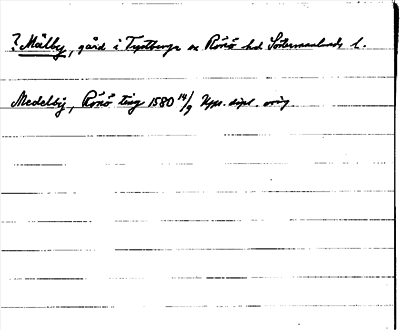 ? Mälby, gård i Tystberga sn Rönö hd Södermanlands l.
Medelbÿ, Rönö ting 1580 14/9 Upps. dipl. orig